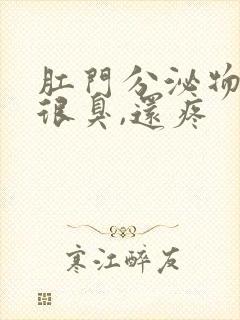 肛門分泌物
很臭,還疼
寒江醉友